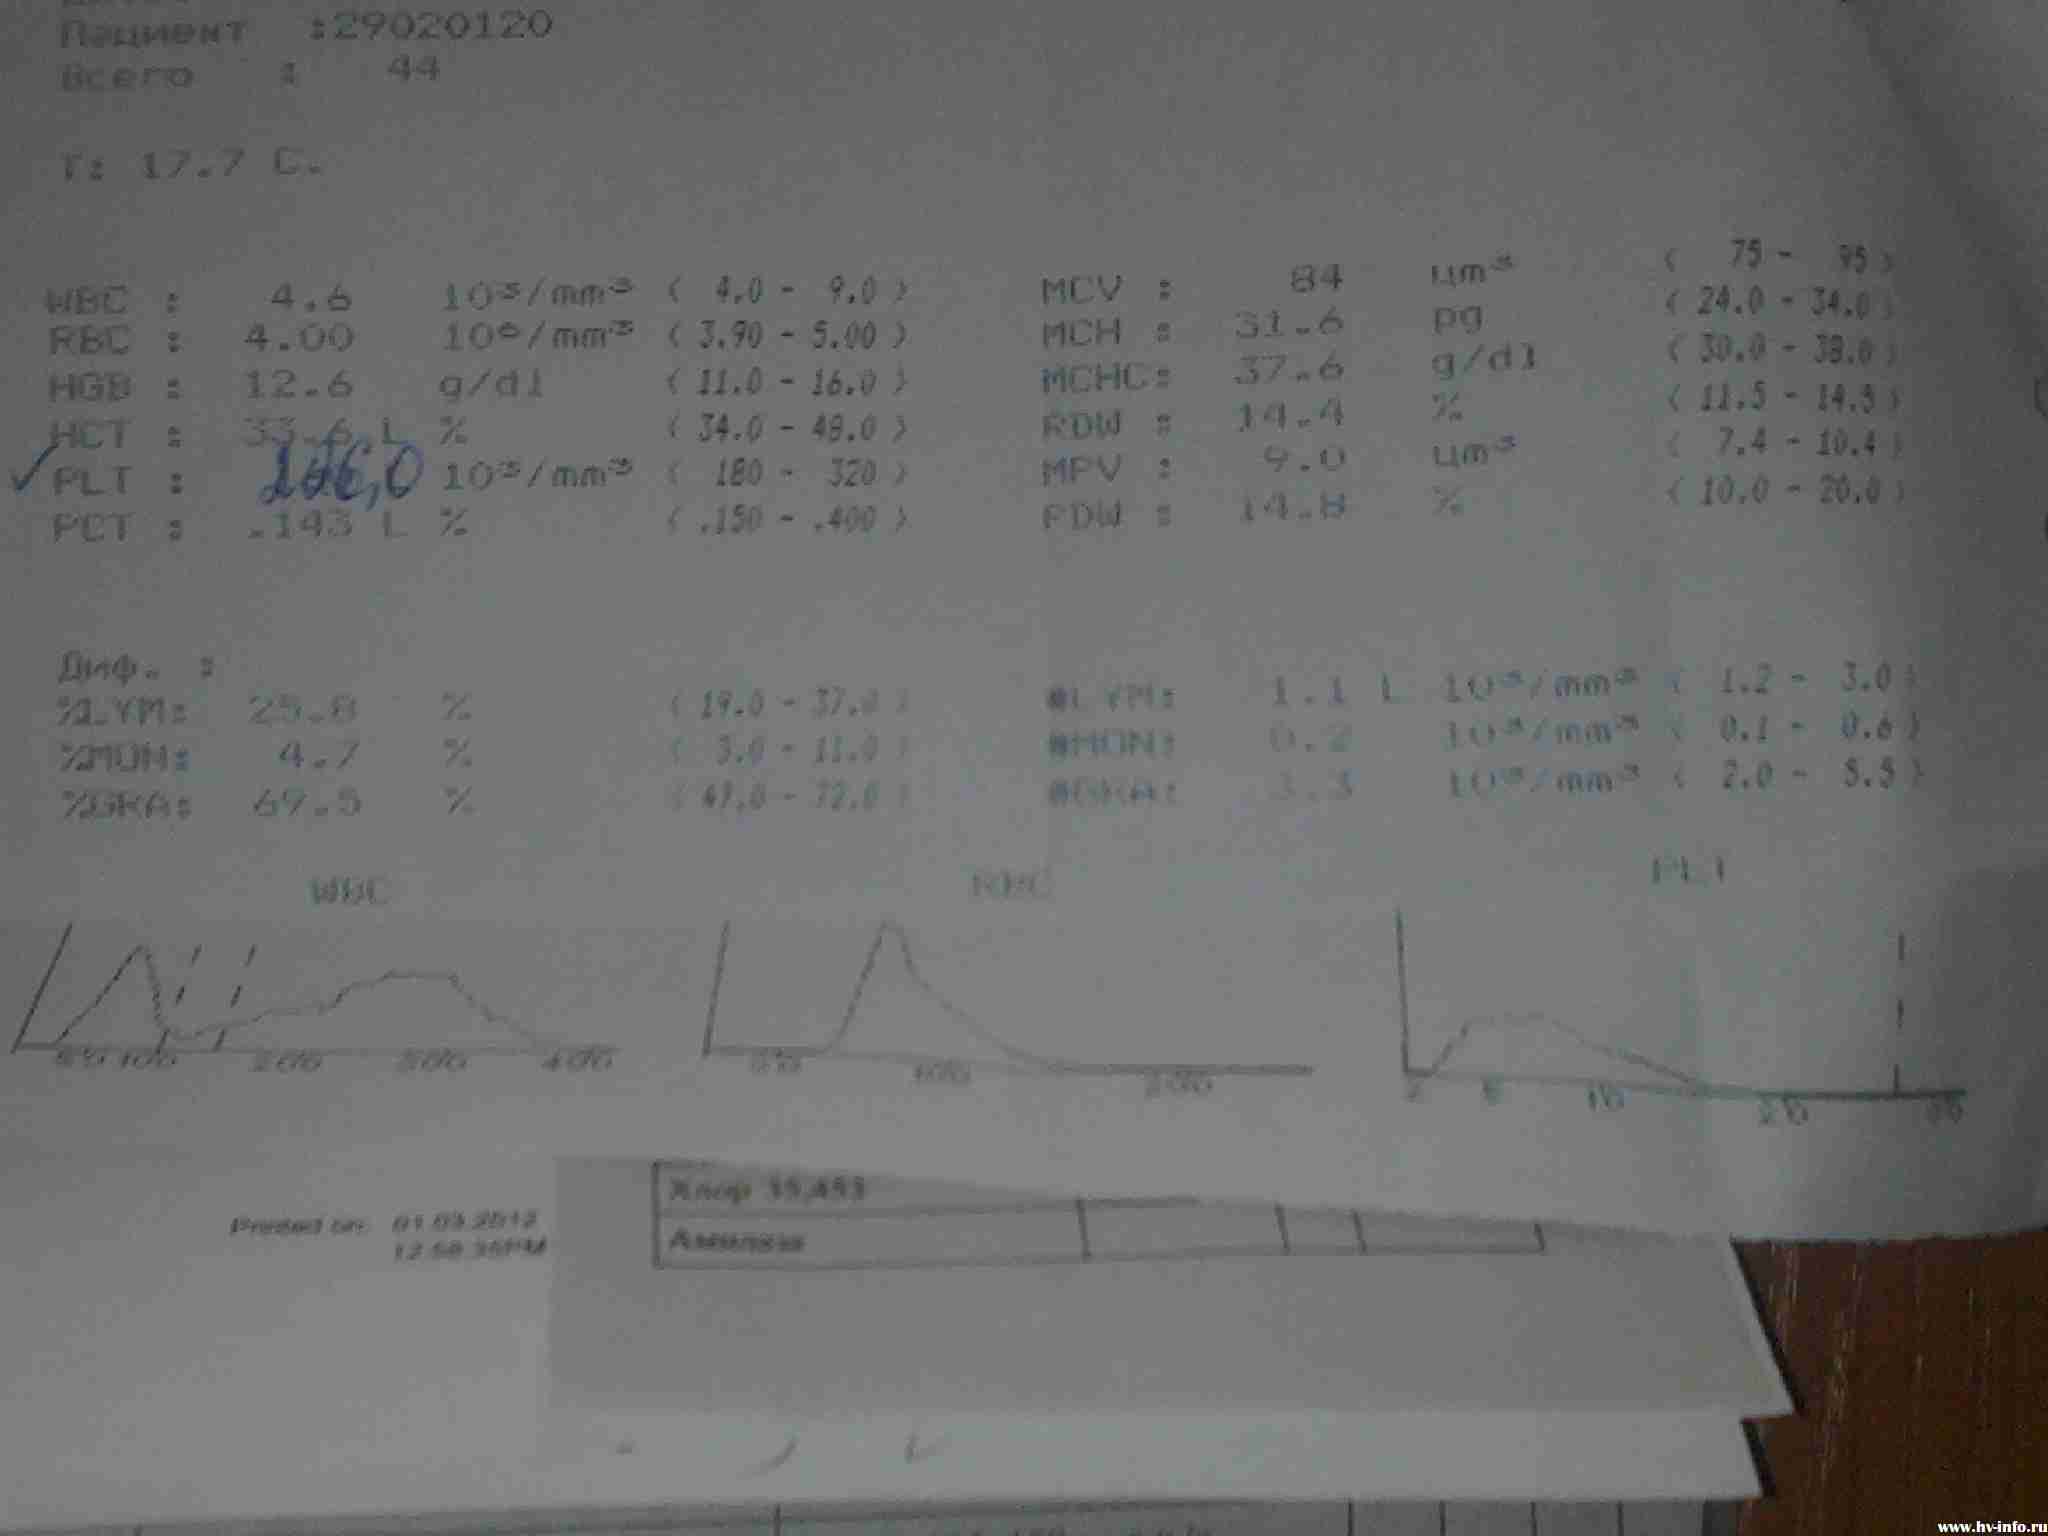 Пациент :29020120
Всего : 44
Т: 17.7 С.
WBC : 4.6 10³/mm³ ( 4.0 - 9.0 ) MCV : 84 µm³ ( 75 - 95 )
RBC : 4.00 10⁶/mm³ ( 3.90 - 5.00 ) MCH : 31.6 pg ( 24.0 - 34.0 )
HGB : 12.6 g/dl ( 11.0 - 16.0 ) MCHC: 37.6 g/dl ( 30.0 - 38.0 )
HCT : 33.6 L % ( 34.0 - 48.0 ) RDW : 14.4 % ( 11.5 - 14.5 )
PLT : 10³/mm³ ( 180 - 320 ) MPV : 9.0 µm³ ( 7.4 - 10.4 )
PCT : .143 L % ( .150 - .400 ) PDW : 14.8 % ( 10.0 - 20.0 )
Диф. :
%LYM: 25.8 % ( 19.0 - 37.0 ) #LYM: 1.1 L 10³/mm³ ( 1.2 - 3.0 )
%MON: 4.7 % ( 3.0 - 11.0 ) #MON: 0.2 10³/mm³ ( 0.1 - 0.6 )
%GRA: 69.5 % ( 47.0 - 72.0 ) #GRA: 3.3 10³/mm³ ( 2.0 - 5.5 )
WBC RBC PLT
50 100 200 300 400 50 100 200 2 5 10 20 30
Хлор
Printed on: 01.03.2012
Амилаза
www.hv-info.ru